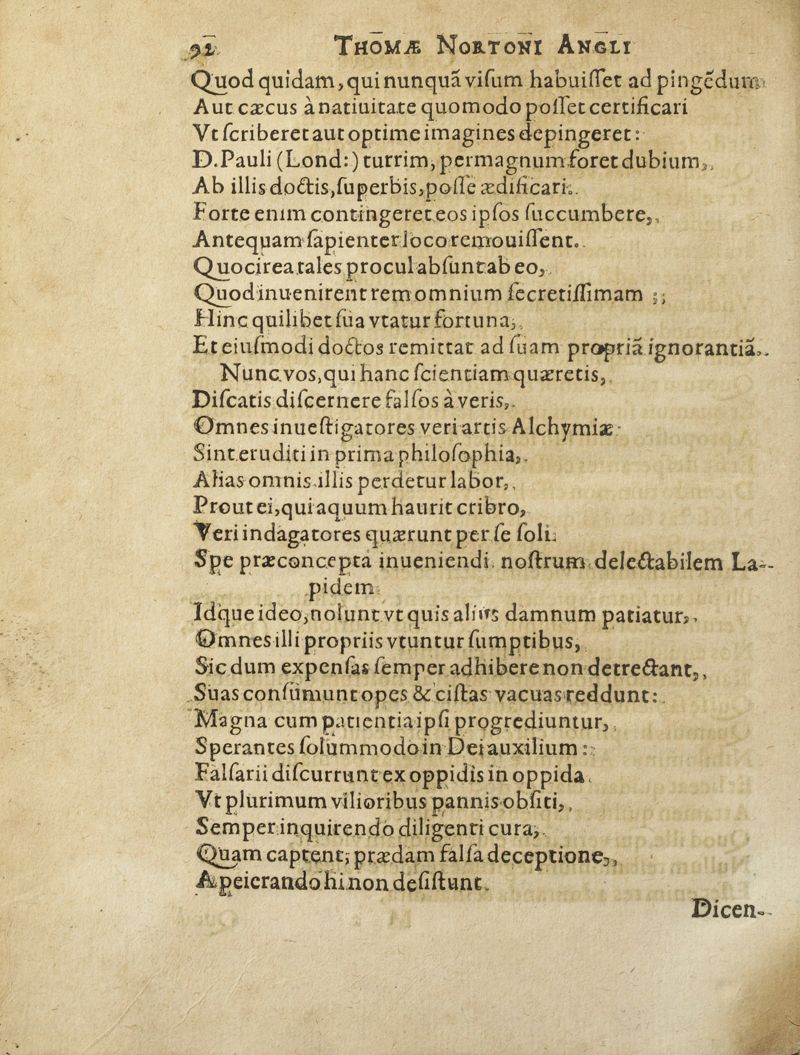 92 THOMÆ NORTONI ANGLI
Quod quidam, qui nunquã viſum habuiſſet ad pingẽdum
Aut cæcus à natiuitate quomodo poſſet certificari
Vt ſcriberet aut optime imagines depingeret:
D. Pauli (Lond:) turrim, permagnum foret dubium,
Ab illis doctis, ſuperbis, poſſe ædificari.
Forte enim contingeret eos ipſos ſuccumbere,
Antequam ſapienter loco remouiſſent.
Quocirea tales procul abſunt ab eo,
Quod inuenirent rem omnium ſecretiſſimam ;
Hinc quilibet ſua vtatur fortuna,
Et eiuſmodi doctos remittat ad ſuam propriã ignorantiã.
Nunc vos, qui hanc ſcientiam quæretis,
Diſcatis diſcernere falſos à veris,
Omnes inueſtigatores veri artis Alchymiæ
Sint eruditi in prima philoſophia,
Alias omnis illis perdetur labor,
Prout ei, qui aquum haurit cribro,
Veri indagatores quærunt per ſe ſoli
Spe præconcepta inueniendi noſtrum delectabilem La-
pidem
Idque ideo, nolunt vt quis alius damnum patiatur,
Omnes illi propriis vtuntur ſumptibus,
Sic dum expenſas ſemper adhibere non detrectant,
Suas conſumunt opes & ciſtas vacuas reddunt:
Magna cum patientia ipſi progrediuntur,
Sperantes ſolummodo in Dei auxilium:
Falſarii diſcurrunt ex oppidis in oppida
Vt plurimum vilioribus pannis obſiti,
Semper inquirendo diligenti cura,
Quam captent, prædam falſa deceptione,
A peierando hi non deſiſtunt.
Dicen-